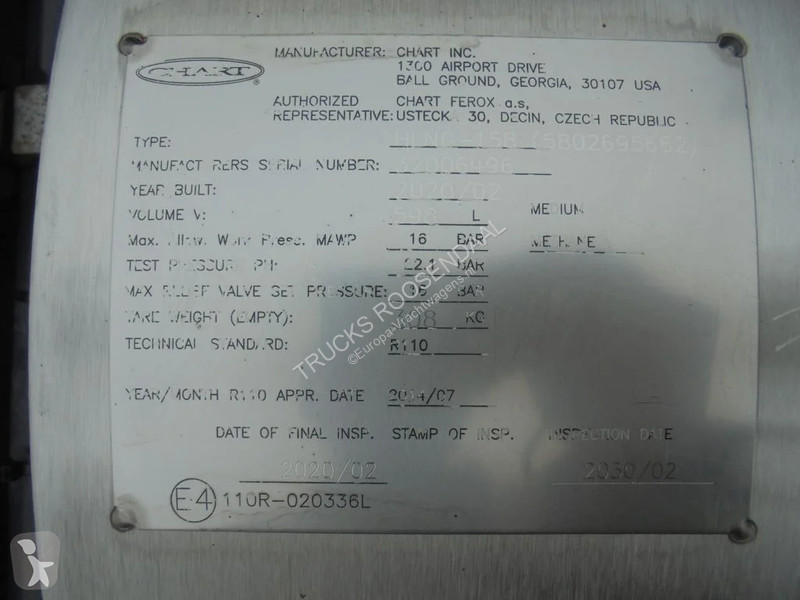 CHART
MANUFACTURER: CHART INC.
1300 AIRPORT DRIVE
BALL GROUND, GEORGIA, 30107 USA
AUTHORIZED CHART FEROX a.s,
REPRESENTATIVE: USTECK 30, DECIN, CZECH REPUBLIC
TYPE:
MANUFACTURERS SERIAL NUMBER:
YEAR BUILT: 2020/02
VOLUME V: L MEDIUM
Max. Allow. Work Press. MAWP 16 BAR METHANE
TEST PRESSURE PH: 22.1 BAR
MAX RELIEF VALVE SET PRESSURE: BAR
TARE WEIGHT (EMPTY): KG
TECHNICAL STANDARD: R110
YEAR/MONTH R110 APPR. DATE 2014/07
DATE OF FINAL INSP. STAMP OF INSP. INSPECTION DATE
2020/02 2030/02
E4 110R-020336L
TRUCKS ROOSENDAAL
©Europa-Vrachtwagens